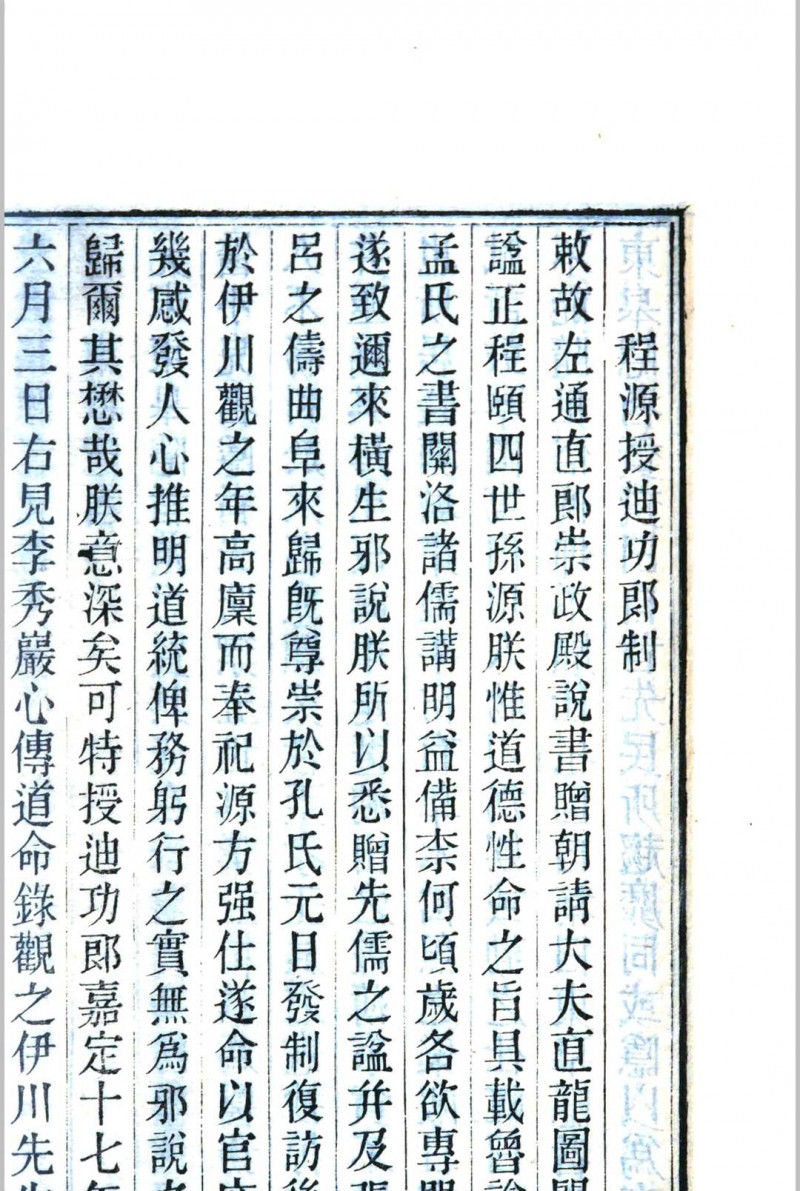 程源授迪功郎制
敕故左通直郎崇政殿說書贈朝請大夫直龍圖閣
諡正程頤四世孫源朕惟道德性命之旨具載魯論
孟氏之書關洛諸儒講明益備柰何頃歲各欲專門
遂致邇來橫生邪說朕所以悉贈先儒之諡幷及張
呂之儔曲阜來歸旣尊崇於孔氏元日發制復訪後
於伊川觀之年高廩而奉祀源方强仕遂命以官庶
幾感發人心推明道統俾務躬行之實無爲邪說
歸爾其懋哉朕意深矣可特授迪功郎嘉定十七年
六月三日右見李秀巖心傳道命錄觀之伊川先生